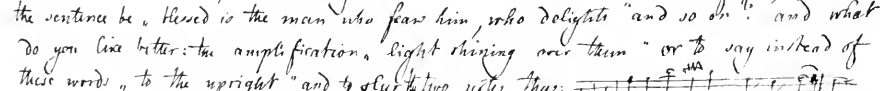 the sentence be „ blessed is the man who fears him, who delights " and so on "? and what
do you like better: the amplification „ light shining over them " or to say instead of
these words „ to the upright " and to slur the two notes thus: